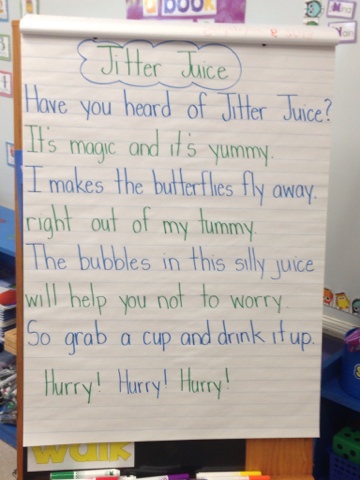 a book
Jitter Juice
Have you heard of Jitter Juice?
It's magic and it's yummy.
I makes the butterflies fly away.
right out of my tummy.
The bubbles in this silly juice
will help you not to worry.
So grab a cup and drink it up.
Hurry! Hurry! Hurry!
walk